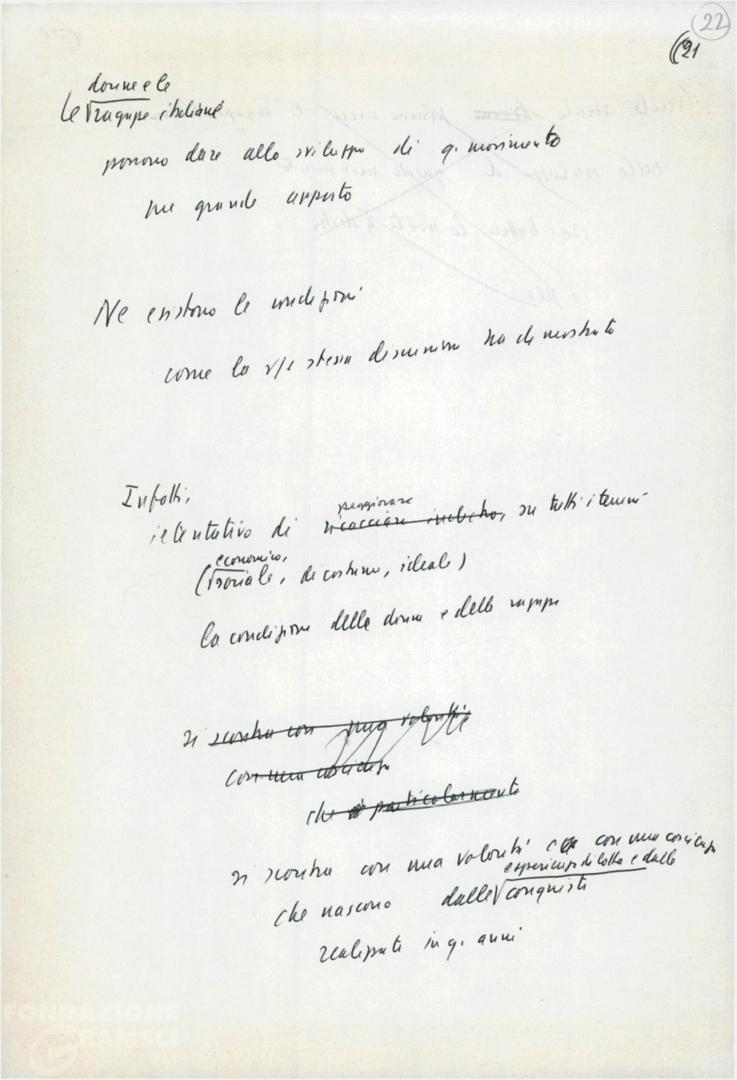 22
(21
donne e le
le ragazze italiane
possono dare allo sviluppo di q. movimento
un grande apporto
Ne esistono le condizioni
come la vs/ stessa discussione ha dimostrato
Infatti,
peggiorare
il tentativo di ricacciare indietro, su tutti i terreni
economico,
(sociale, di costume, ideale)
la condizione delle donne e delle ragazze
si scontra con una volontà
con una coscienza
che particolarmente
si scontra con una volontà e con una coscienza
esperienze di lotta e dalle
che nascono dalle conquiste
realizzate in q. anni
FONDAZIONE
GRAMSCI